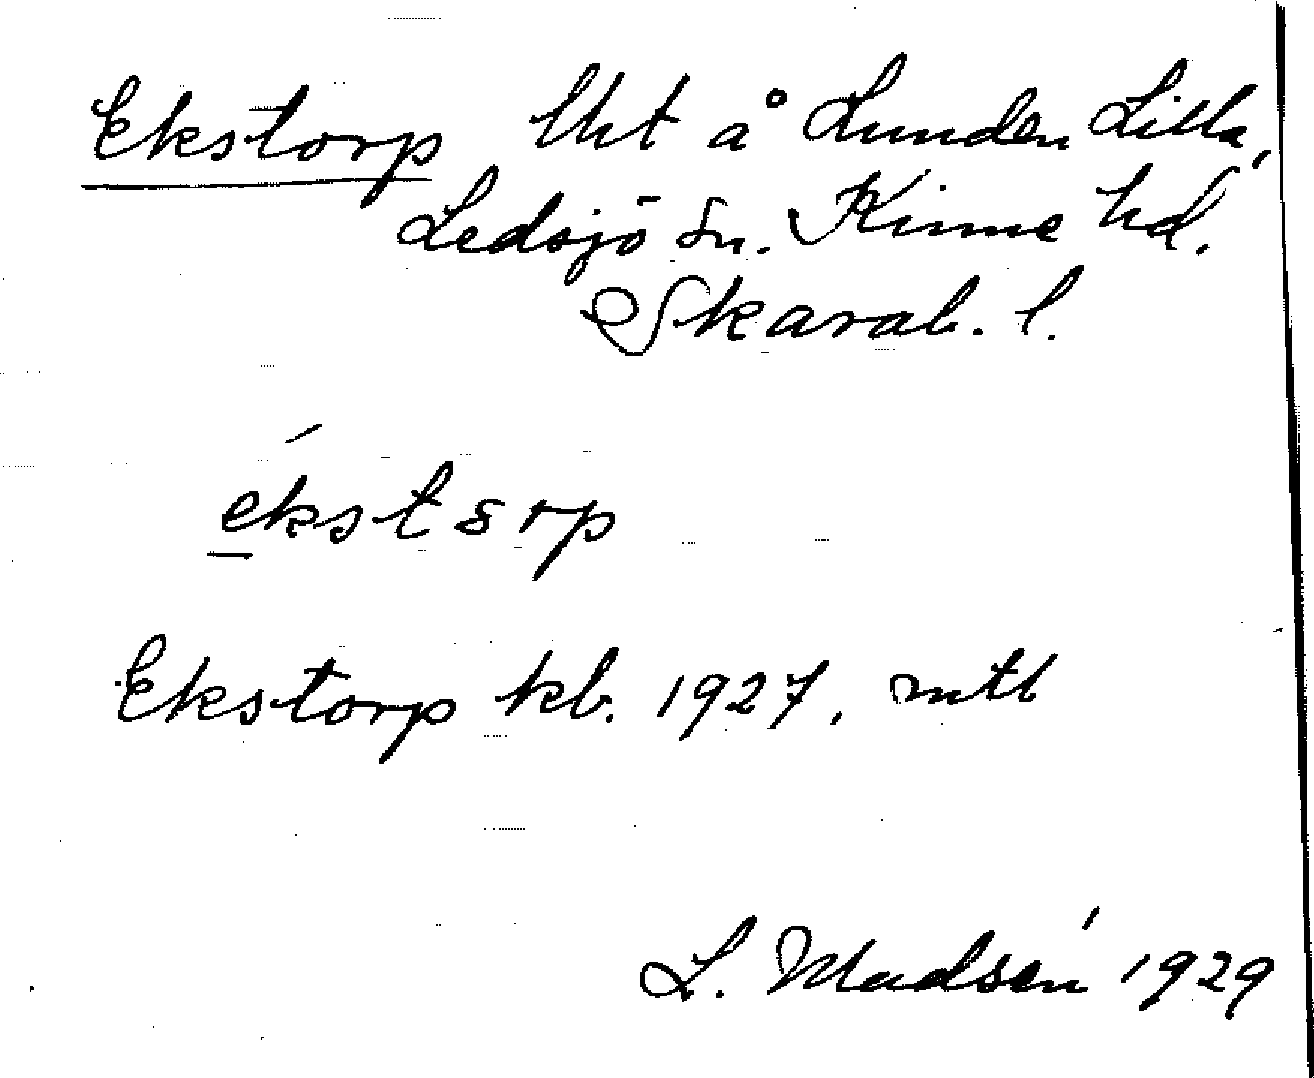 Ekstorp Uht å Lunden Lilla,
Ledsjö sn. Kinne hd.
Skarab. l.
ékstsrp
Ekstorp kb. 1927, mtl
L. Madsén 1929